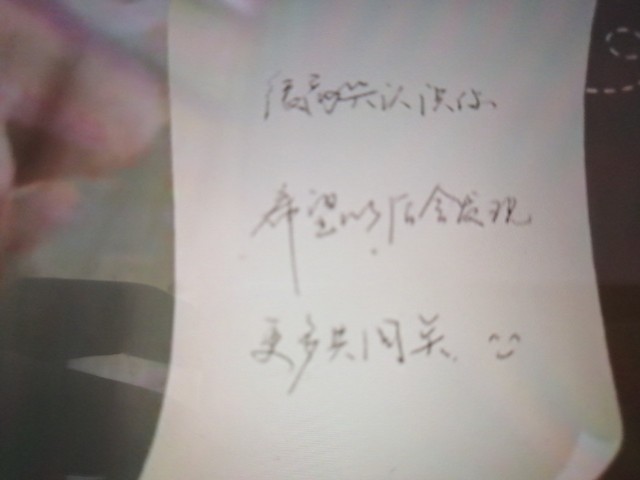 很高兴认识你
希望以后会发现
更多共同